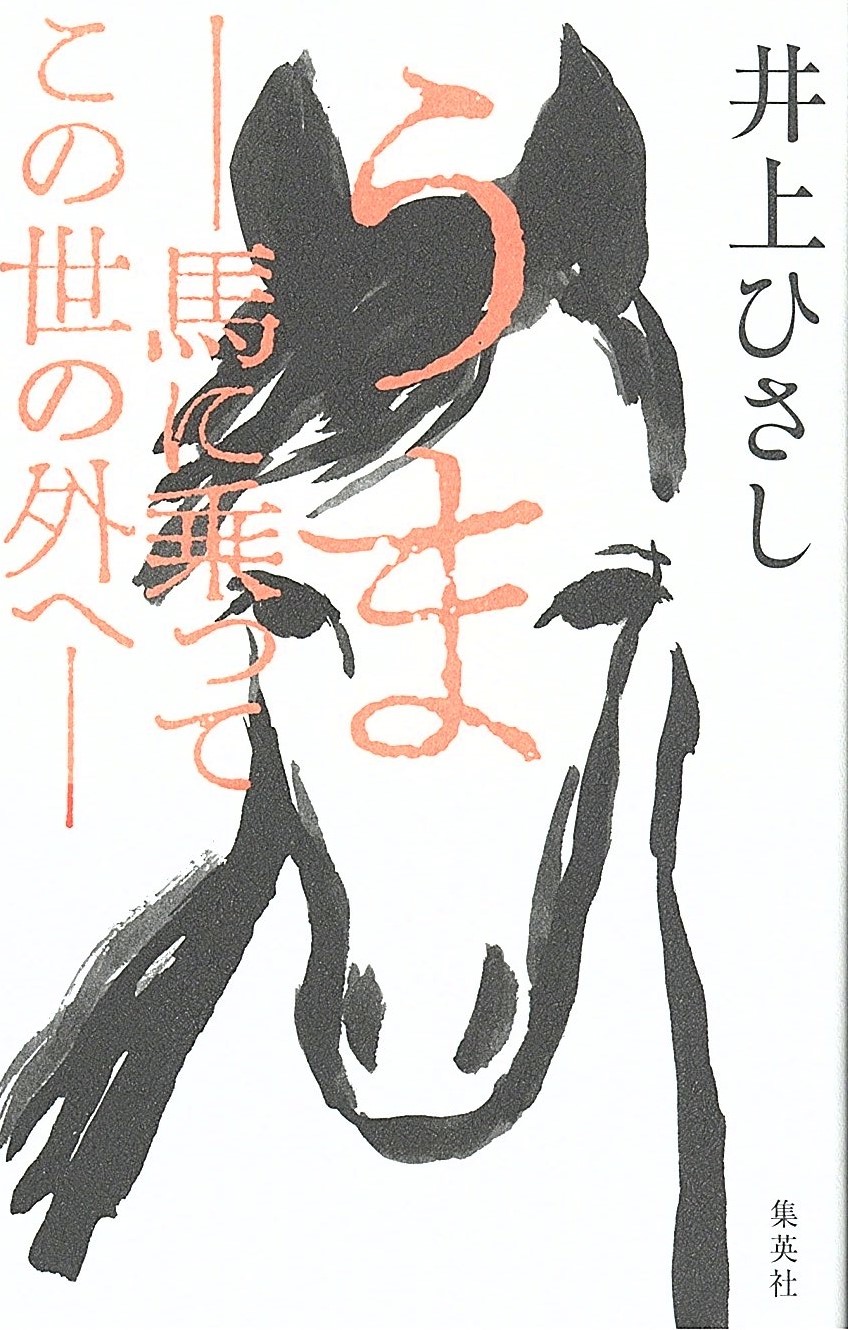 井上ひさし
うま
―馬に乗って
この世の外へ―
集英社